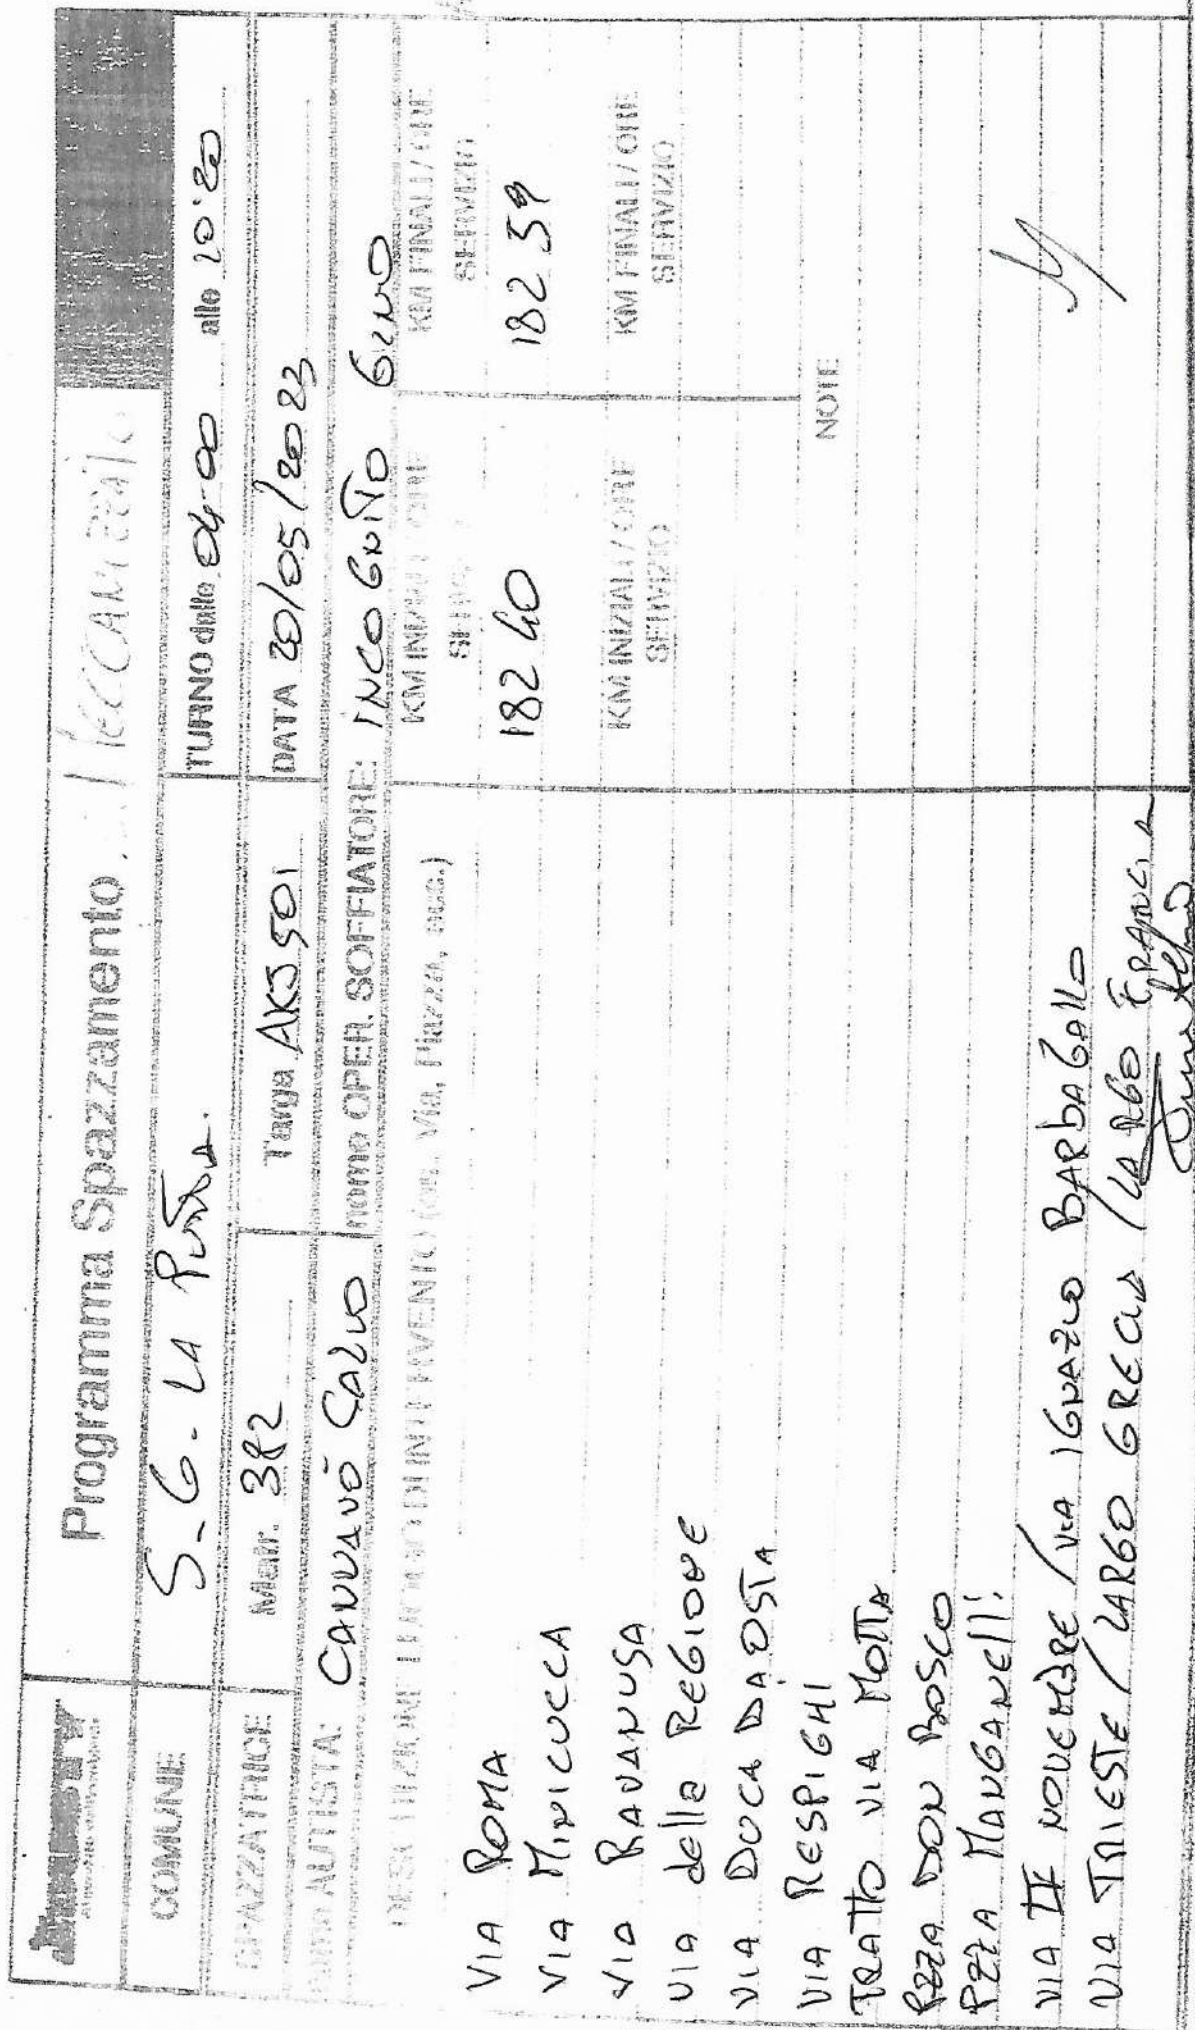 Programma Spazzamento Meccanizzato
COMUNE S-G- LA PUNTA TURNO dalle 04-00 alle 10:20
SPAZZATRICE Matr. 382 Targa AKJ501 DATA 20/05/2023
nome AUTISTA: CANNAVÒ CARLO nome OPER. SOFFIATORE: INCOGNITO GINO
DESCRIZIONE LUOGO DI INTERVENTO (es. Via, Piazza, ecc.) KM INIZIALI / ORE SERVIZIO KM FINALI / ORE SERVIZIO
VIA ROMA 182 40 182 59
VIA MINICUCCA
VIA RAVANUSA KM INIZIALI / ORE SERVIZIO KM FINALI / ORE SERVIZIO
VIA della REGIONE
VIA DUCA DAOSTA
VIA RESPIGHI NOTE
TRATTO VIA MOTTA
PZZA DON BOSCO
PZZA MANGANELLI
VIA NOVEMBRE / VIA IGNAZIO BARBAGALLO
VIA TRIESTE / LARGO GRECIA / LARGO FRANCIA